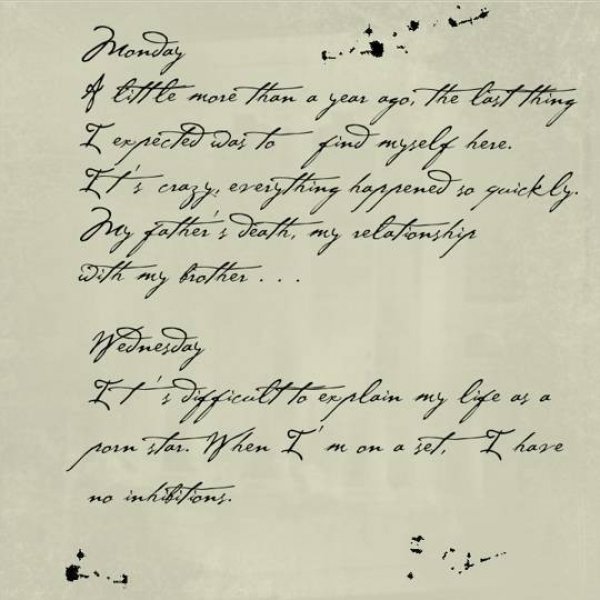 Monday
A little more than a year ago, the last thing
I expected was to find myself here.
It's crazy, everything happened so quickly.
My father's death, my relationship
with my brother . . .
Wednesday
It's difficult to explain my life as a
porn star. When I'm on a set, I have
no inhibitions.